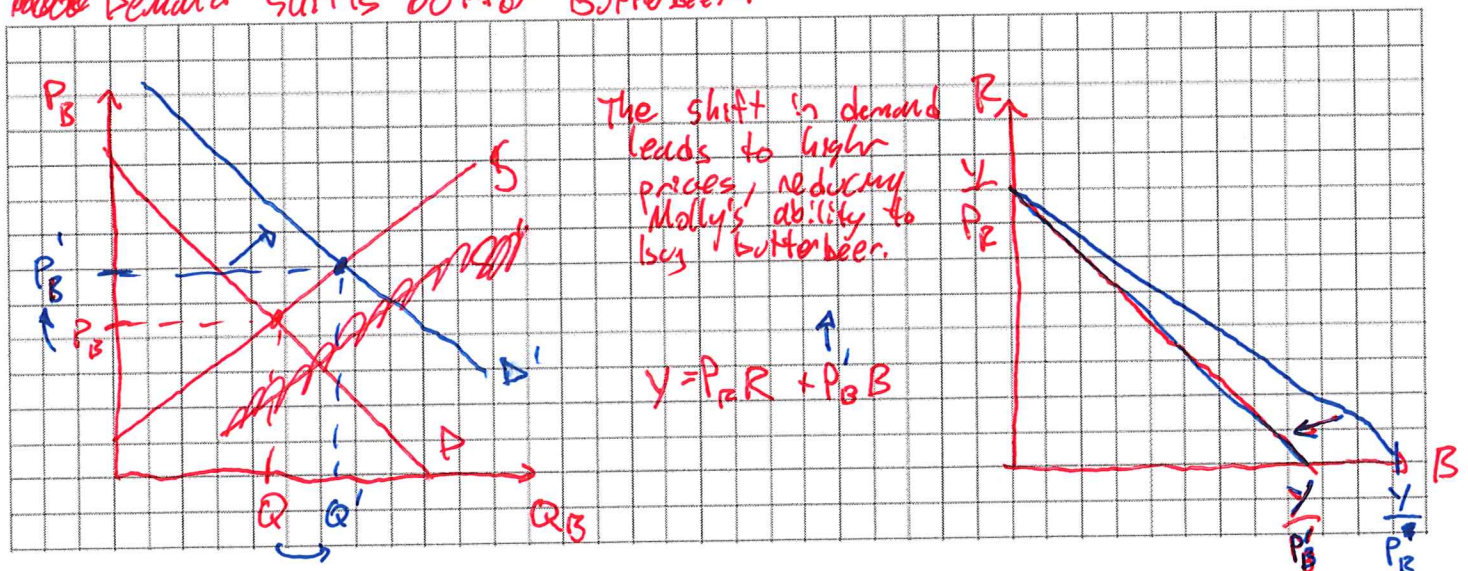 Demand shifts out for Butterbeer.
P_B
S
P_B'
P_B
D'
D
Q
Q'
Q_B
The shift in demand
leads to higher
prices, reducing
Molly's ability to
buy butterbeer.
Y = P_R R + P_B' B
R
Y
P_R
B
Y
P_B'
Y